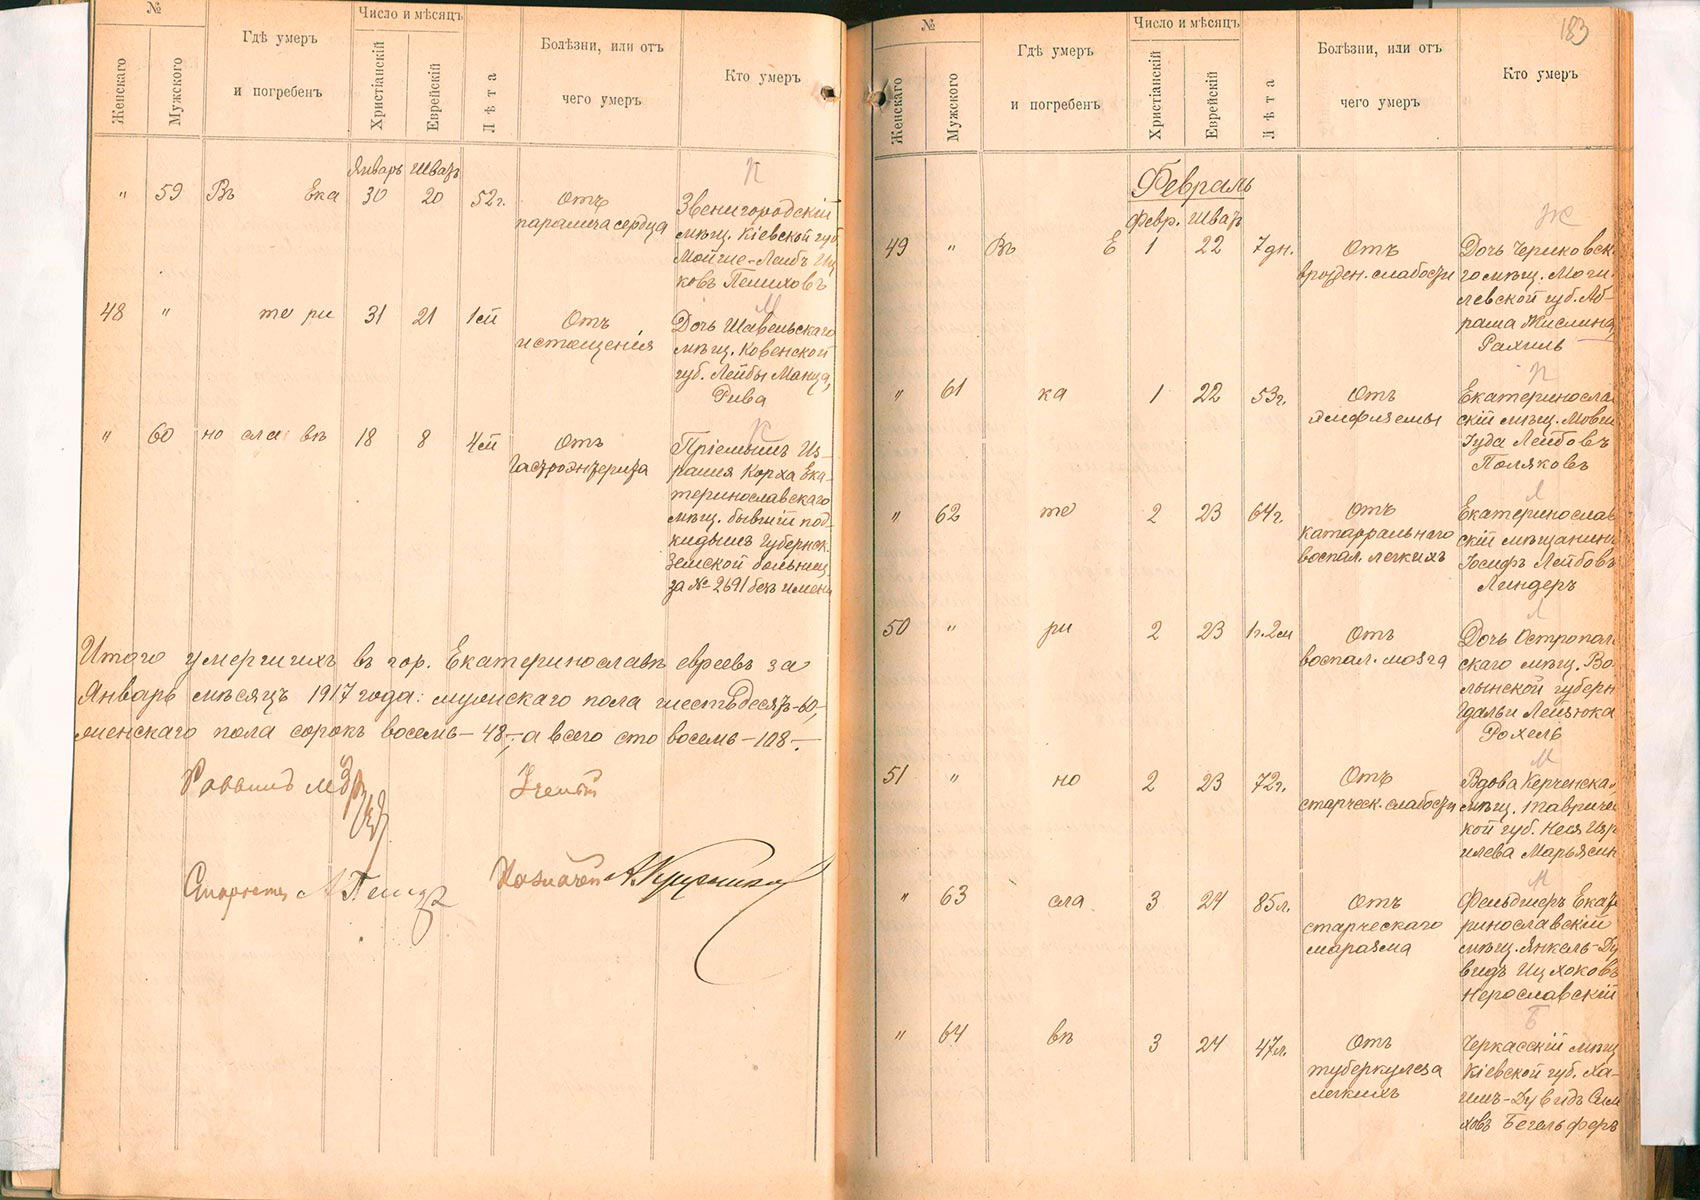 №
Женскаго
Мужского
Гдѣ умеръ
и погребенъ
Число и мѣсяцъ
Христіанскій
Еврейскій
Лѣта
Болѣзни, или отъ
чего умеръ
Кто умеръ
Январь Шватъ
" 59 Въ Ека 30 20 52г.
Отъ
паралича сердца
П
Звенигородскій
мѣщ. Кіевской губ.
Мойше-Лейбъ Иц
ковъ Пешиховъ
48 " те ри 31 21 1 м
Отъ
истощенія
М
Дочь Шавельскаго
мѣщ. Ковенской
губ. Лейбы Манца,
Рива
" 60 но сла вѣ 18 8 4 м
Отъ
Гастроэнтерита
К
Пріемышъ Из-
раиля Корха Ека-
теринославскаго
мѣщ. бывшій под-
кидышъ Губернск.
Земской больниц
за № 2691 безъ имени
Итого умершихъ въ гор. Екатеринославѣ евреевъ за
Январь мѣсяцъ 1917 года: мужскаго пола шестьдесятъ-60,
женскаго пола сорокъ восемь-48-, а всего сто восемь-108-.
Раввинъ
Ученый
Староста
Казначей
183
№
Женскаго
Мужского
Гдѣ умеръ
и погребенъ
Число и мѣсяцъ
Христіанскій
Еврейскій
Лѣта
Болѣзни, или отъ
чего умеръ
Кто умеръ
Февраль
Февр. Шватъ
49 " Въ Е 1 22 7 дн.
Отъ
врожден. слабости
Ж
Дочь Чериковска
го мѣщ. Моги-
левской губ. Аб-
рама Жислина,
Рахиль
" 61 ка 1 22 53г.
Отъ
эмфиземы
П
Екатеринослав
скій мѣщ. Мовша
Іуда Лейбовъ
Поляковъ
" 62 те 2 23 64г.
Отъ
катарральнаго
воспал. легкихъ
Л
Екатеринослав
скій мѣщанинъ
Іосифъ Лейбовъ
Линдеръ
50 " ри 2 23 1г. 2м
Отъ
воспал. мозга
Л
Дочь Острополь
скаго мѣщ. Во-
лынской губерн
Гдальи Лейзюка
Рохель
51 " но 2 23 72г.
Отъ
старческ. слабости
М
Вдова Керченска
мѣщ. Тавриче
кой губ. Неся Изр
илева Марьясин
" 63 сла 3 24 85л.
Отъ
старческаго
маразма
Фельдшеръ Екате
ринославскій
мѣщ. Янкель-Ду
видъ Ицхоковъ
Нерославскій
" 64 вѣ 3 24 47л.
Отъ
туберкулеза
легкихъ
Б
Черкасскій мѣщ
Кіевской губ. Ха-
имъ-Дувидъ Сим
ховъ Бегельферъ